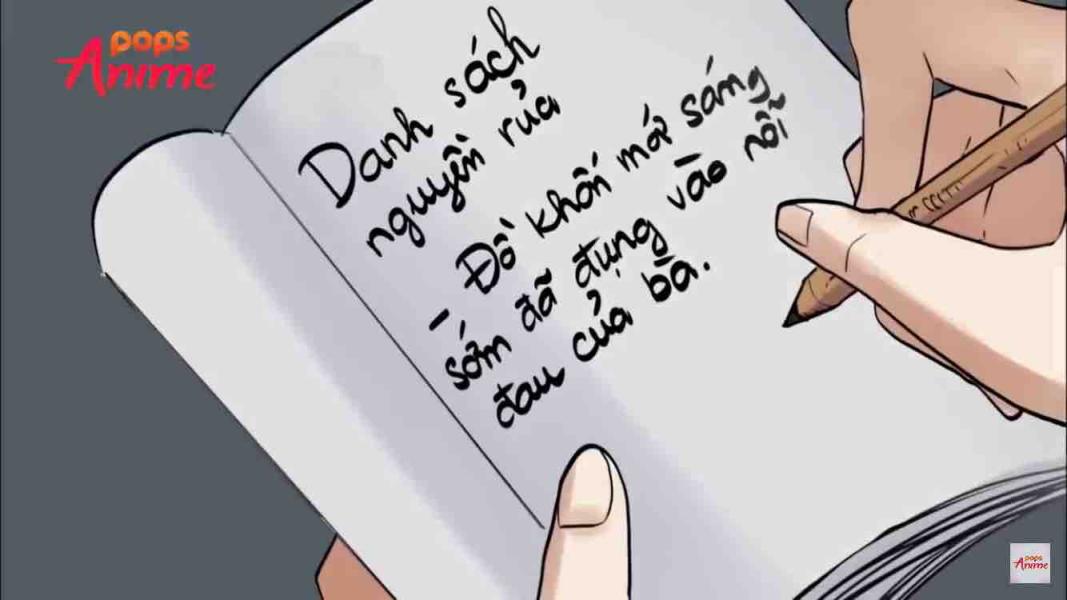 pops
Anime
Danh sách
nguyền rủa
- Đồ khốn mới sáng
sớm đã đụng vào nỗi
đau của bà.
pops
Anime